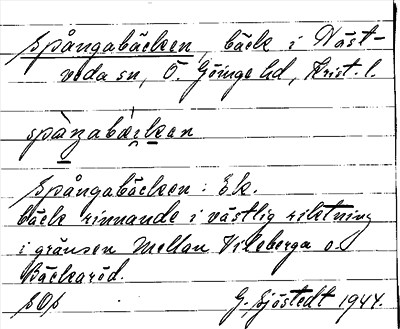 Spångabäcken, bäck i Näst-
veda sn, Ö. Göinge hd, Krist. l.
Spångabäcken: Ek.
bäck rinnande i västlig riktning
i gränsen mellan Vileberga o.
Bäckaröd.
G. Sjöstedt 1944.